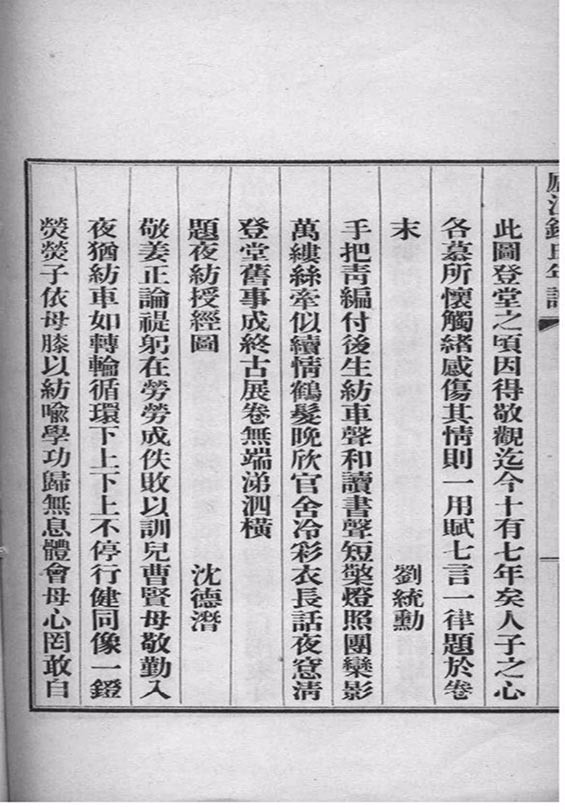 廬江錢氏年譜
此圖登堂之頃因得敬觀迄今十有七年矣人子之心
各慕所懷觸緒感傷其情則一用賦七言一律題於卷
末 劉統勳
手把靑編付後生紡車聲和讀書聲短檠燈照團欒影
萬縷絲牽似續情鶴髮晚欣官舍冷彩衣長話夜窻清
登堂舊事成終古展卷無端涕泗橫
題夜紡授經圖 沈德潛
敬姜正論禔躬在勞勞成佚敗以訓兒曹賢母敬勤入
夜猶紡車如轉輪循環下上下上不停行健同像一鐙
熒熒子依母膝以紡喩學功歸無息體會母心罔敢白